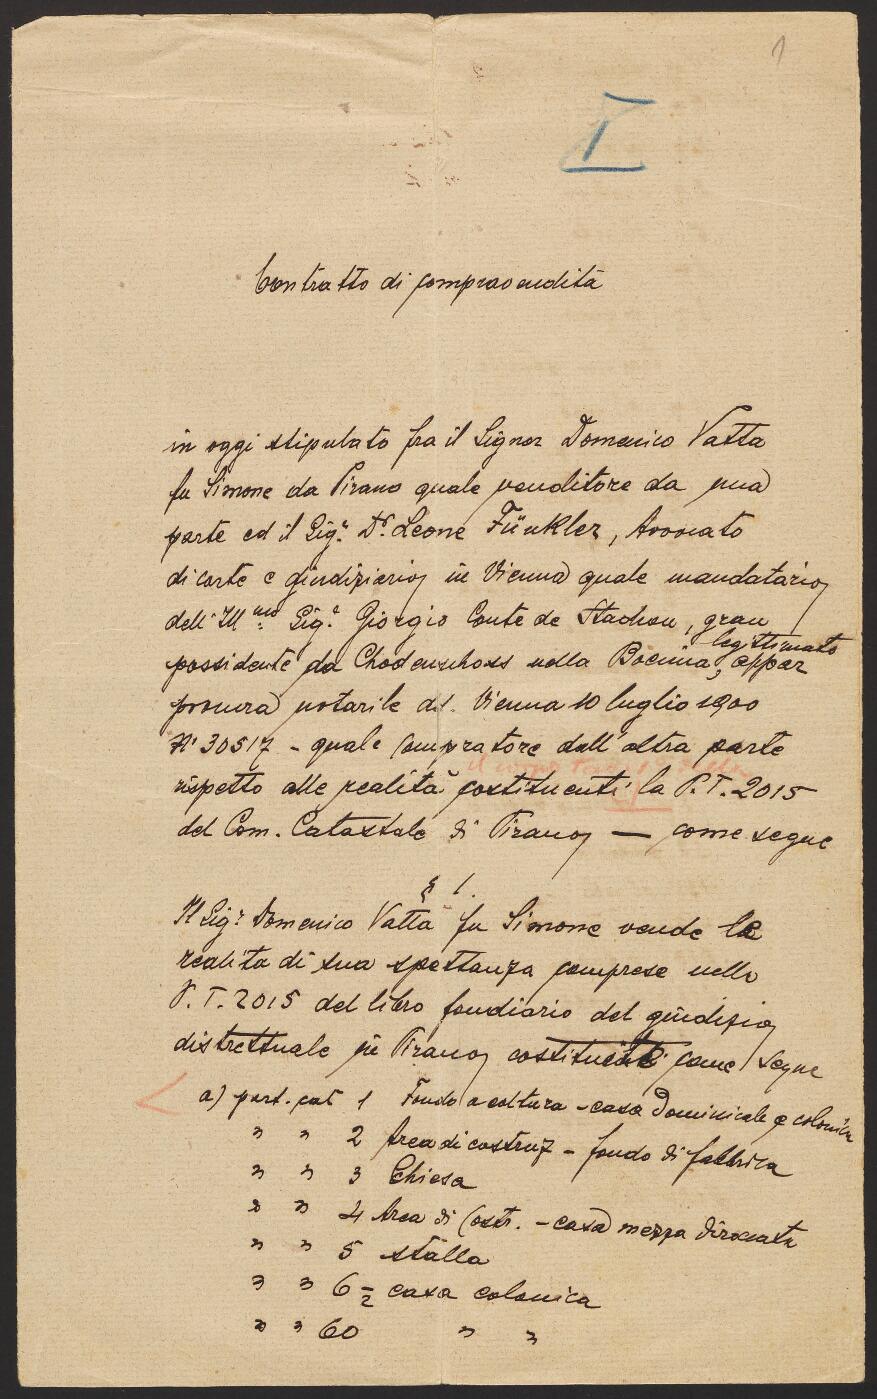 1
I
Contratto di compravendita
in oggi stipulato fra il Signor Domenico Vatta
fu Simone da Pirano quale venditore da una
parte ed il Sigr. Dr. Leone Fünkler, Avvocato
di corte e giudiziario, in Vienna quale mandatario
dell' Illmo. Sigr. Giorgio Conte de Stachou, gran
legittimato
possidente da Chodenschoss nella Boemia, apper
procura notarile dd. Vienna 10 luglio 1900
No 30517 - quale compratore dall' altra parte
rispetto alle realità costituenti la P. T. 2015
del Com. Catastale di Pirano — come segue
§ 1.
Il Sigr. Domenico Vatta fu Simone vende le
realità di sua spettanza comprese nella
P. T. 2015 del libro fondiario del giudizio
distrettuale in Pirano costituite come segue
a) part. cat 1 Fondo a coltura - casa Dominicale e colonica
" " 2 Area di costruz - fondo di fabbrica
" " 3 Chiesa
" " 4 Area di Costr. - casa mezza diroccata
" " 5 stalla
" " 6 = 2 casa colonica
" " 60 " "